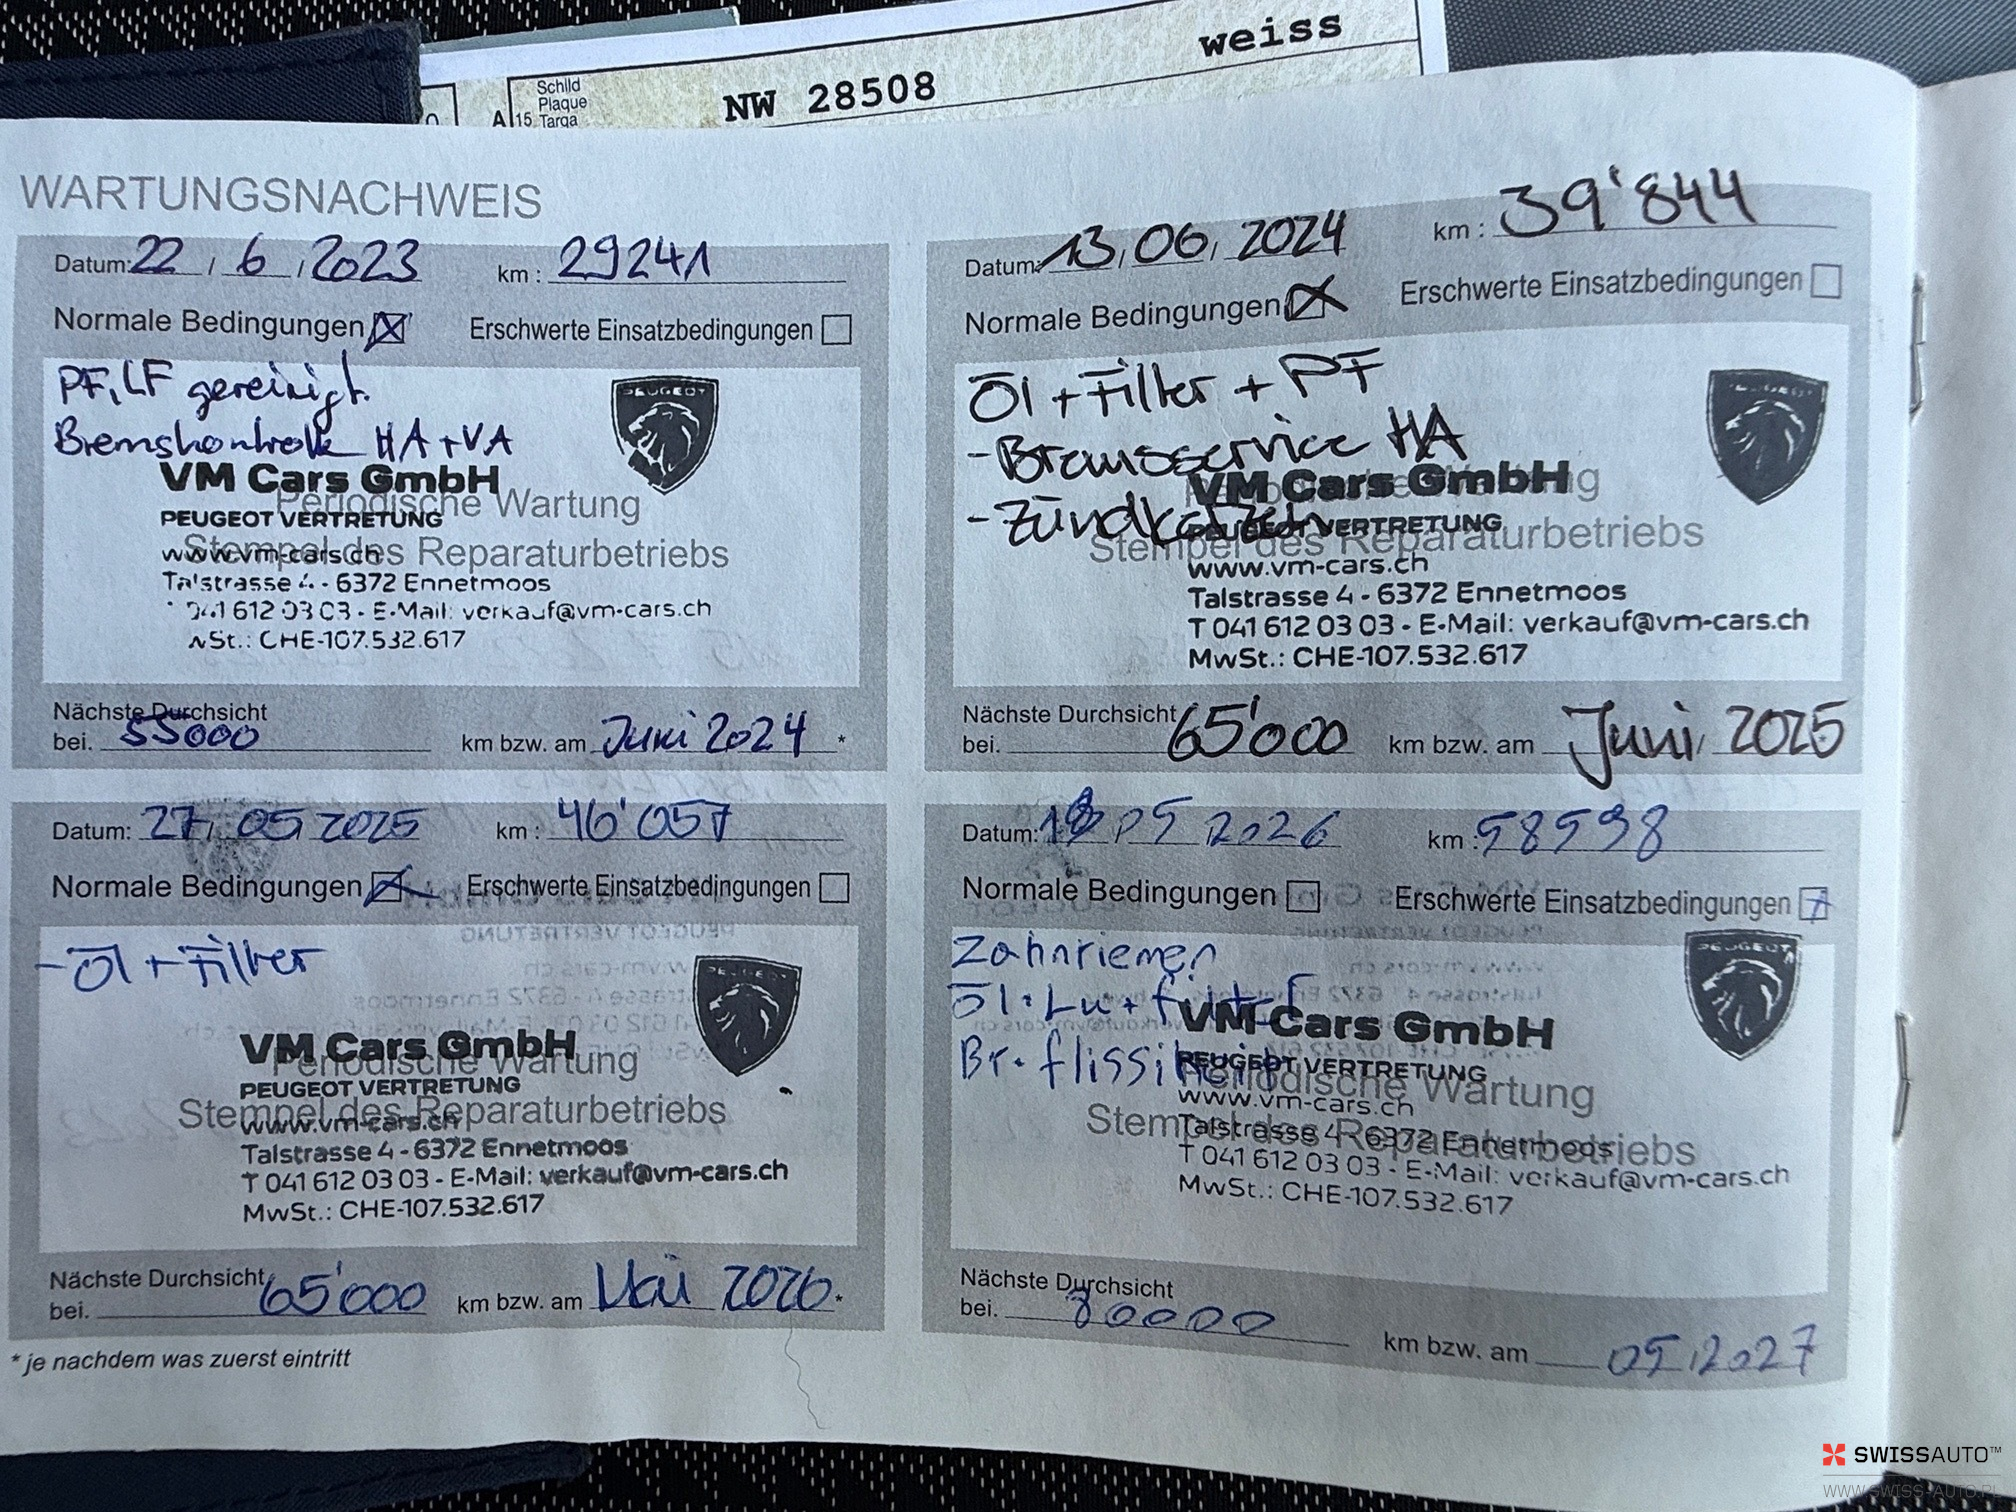 weiss
Schild
Plaque
Targa
A 15 NW 28508
WARTUNGSNACHWEIS
Datum: 22 / 6 / 2023 km : 29241
Normale Bedingungen Erschwerte Einsatzbedingungen
PF, LF gereinigt.
Bremskontrolle HA + VA
PEUGEOT
VM Cars GmbH
Periodische Wartung
PEUGEOT VERTRETUNG
www.vm-cars.ch
Stempel des Reparaturbetriebs
Talstrasse 4 - 6372 Ennetmoos
041 612 03 03 - E-Mail: verkauf@vm-cars.ch
wSt.: CHE-107.532.617
Nächste Durchsicht
bei. 55000 km bzw. am Juni 2024 *
Datum: 13, 06, 2024 km : 39'844
Normale Bedingungen Erschwerte Einsatzbedingungen
Öl + Filter + PF
- Bremsservice HA
- Zündkerzen
PEUGEOT
VM Cars GmbH
PEUGEOT VERTRETUNG
Stempel des Reparaturbetriebs
www.vm-cars.ch
Talstrasse 4 - 6372 Ennetmoos
T 041 612 03 03 - E-Mail: verkauf@vm-cars.ch
MwSt.: CHE-107.532.617
Nächste Durchsicht
bei. 65'000 km bzw. am Juni, 2025 *
Datum: 27, 05, 2025 km : 46'057
Normale Bedingungen Erschwerte Einsatzbedingungen
- Öl + Filter
PEUGEOT
VM Cars GmbH
Periodische Wartung
PEUGEOT VERTRETUNG
Stempel des Reparaturbetriebs
www.vm-cars.ch
Talstrasse 4 - 6372 Ennetmoos
T 041 612 03 03 - E-Mail: verkauf@vm-cars.ch
MwSt.: CHE-107.532.617
Nächste Durchsicht
bei. 65'000 km bzw. am Mai 2026 *
Datum: 05 2026 km : 58598
Normale Bedingungen Erschwerte Einsatzbedingungen
Zahnriemen
Öl + Lu + filter
Br. flissikeit
PEUGEOT
VM Cars GmbH
PEUGEOT VERTRETUNG
Periodische Wartung
www.vm-cars.ch
Stempel des Reparaturbetriebs
Talstrasse 4 - 6372 Ennetmoos
T 041 612 03 03 - E-Mail: verkauf@vm-cars.ch
MwSt.: CHE-107.532.617
Nächste Durchsicht
bei. 80000 km bzw. am 05, 2027
* je nachdem was zuerst eintritt
SWISSAUTO™
WWW.SWISS-AUTO.PL